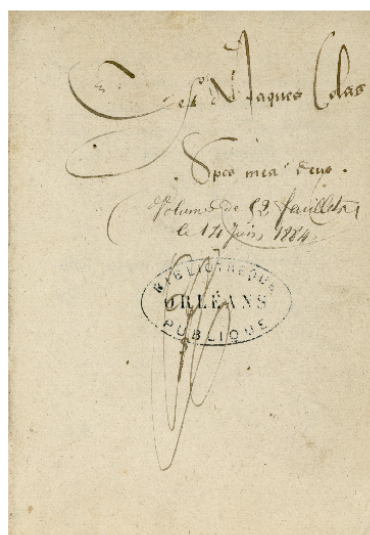 C'est de Jaques Colas
Spes mea deus .
Volume de 62 feuillets
le 14 Juin 1884.
BIBLIOTHEQUE
ORLÉANS
PUBLIQUE